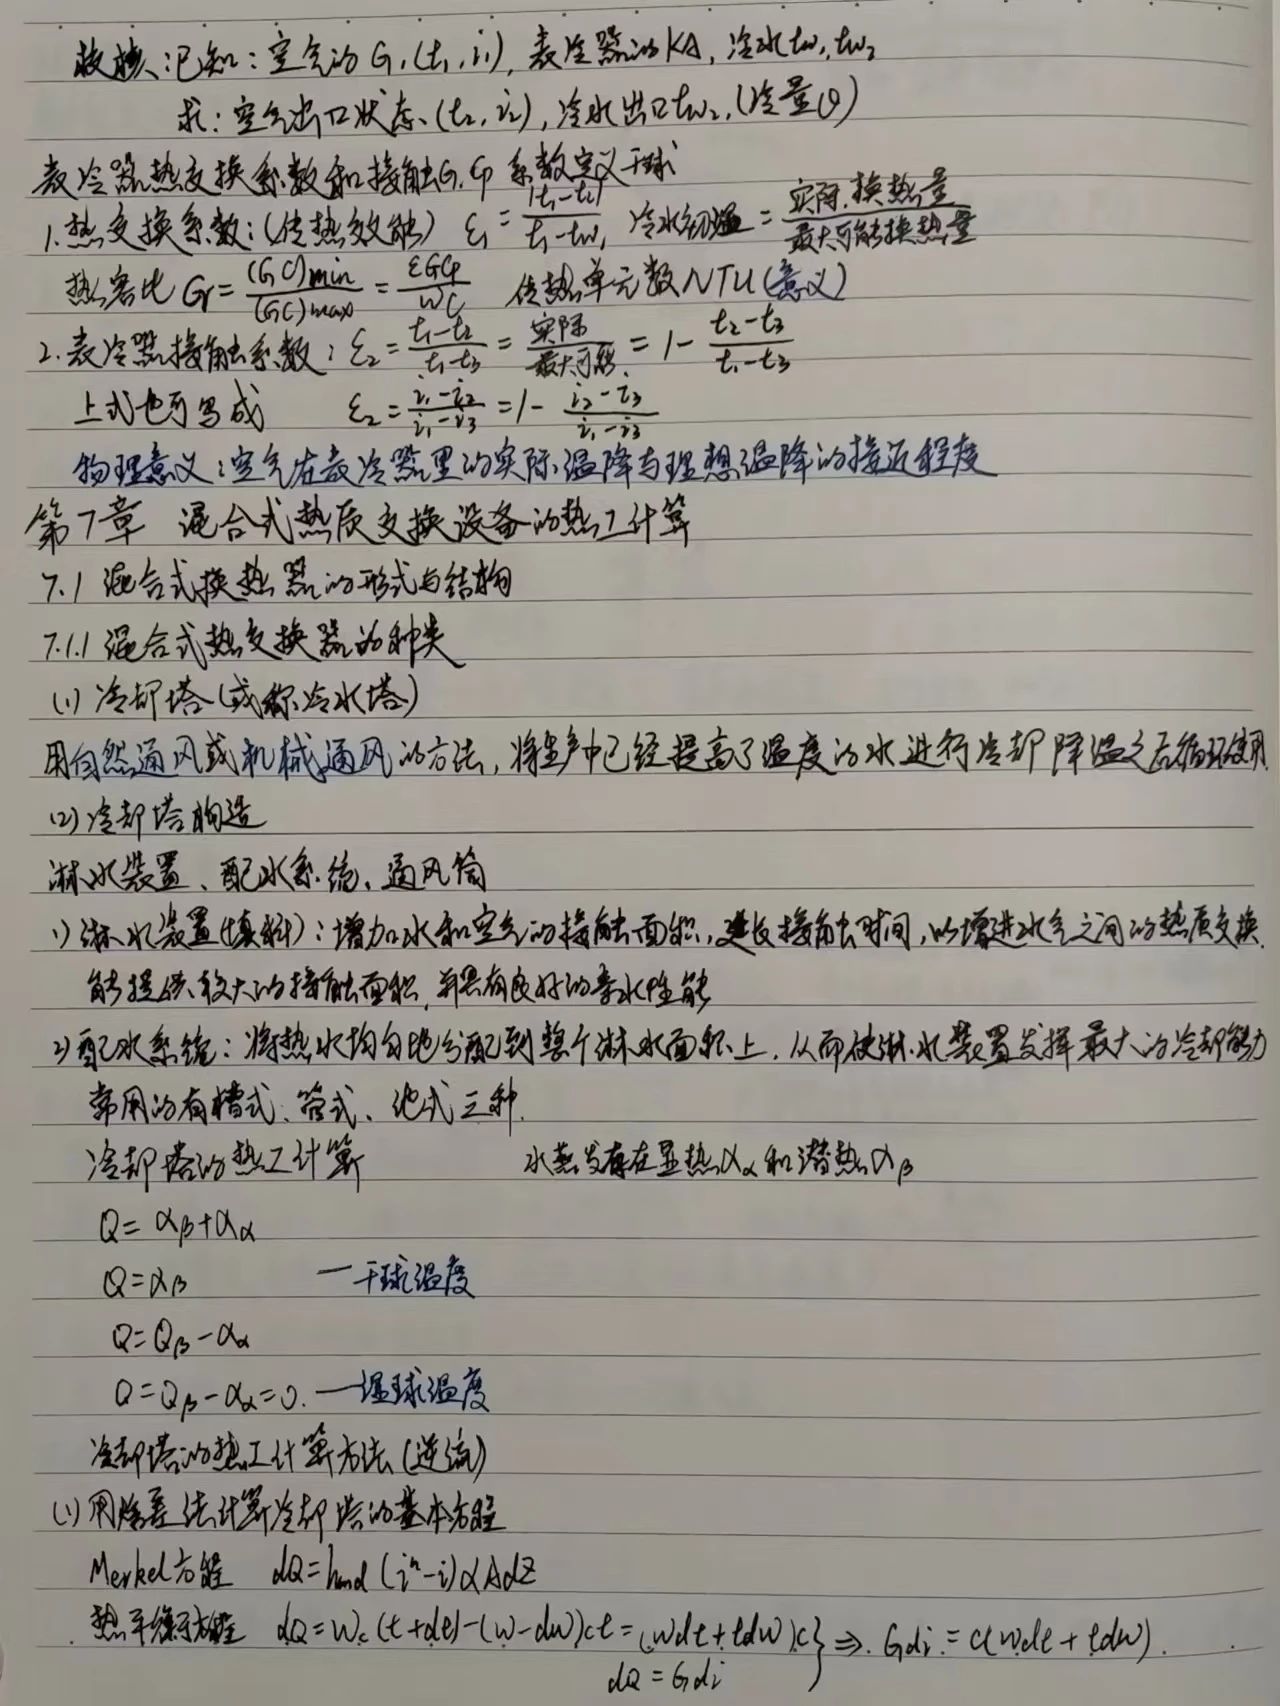 校核:已知:空气的G,(t₁,i₁),表冷器的KA,冷水tw₁,tw₂
求:空气出口状态(t₂,i₂),冷水出口tw₂,(冷量Q)
表冷器热交换系数和接触G.Cp系数定义干球
1.热交换系数:(传热效能) ε₁=|t₁-t₂|/t₁-tw₁ 冷水初温=实际换热量/最大可能换热量
热容比Gr=(GC)min/(GC)max=εGCp/WC 传热单元数NTU(意义)
2.表冷器接触系数:ε₂=t₁-t₂/t₁-t₃=实际/最大可能=1-t₂-t₃/t₁-t₃
上式也可写成 ε₂=i₁-i₂/i₁-i₃=1-i₂-i₃/i₁-i₃
物理意义:空气在表冷器里的实际温降与理想温降的接近程度
第7章 混合式热质交换设备的热工计算
7.1 混合式换热器的形式与结构
7.1.1 混合式热交换器的种类
(1) 冷却塔(或称冷水塔)
用自然通风或机械通风的方法,将生产中已经提高了温度的水进行冷却降温之后循环使用
(2) 冷却塔构造
淋水装置、配水系统、通风筒
1) 淋水装置(填料):增加水和空气的接触面积,延长接触时间,以增进水气之间的热质交换.
能提供较大的接触面积,并具有良好的亲水性能
2) 配水系统:将热水均匀地分配到整个淋水面积上,从而使淋水装置发挥最大的冷却能力
常用的有槽式、管式、池式三种.
冷却塔的热工计算 水蒸发存在显热αα和潜热αβ
Q=αβ+αα
Q=αβ —干球温度
Q=Qβ-αα
Q=Qβ-αα=0. —湿球温度
冷却塔的热工计算方法(逆流)
(1) 用焓差法计算冷却塔的基本方程
Merkel方程 dQ=hmd(i"-i)αAdZ
热平衡方程 dQ=Wc(t+dt)-(W-dW)ct=(Wdt+tdW)c}⇒Gdi=c(Wdt+tdW).
dQ=Gdi